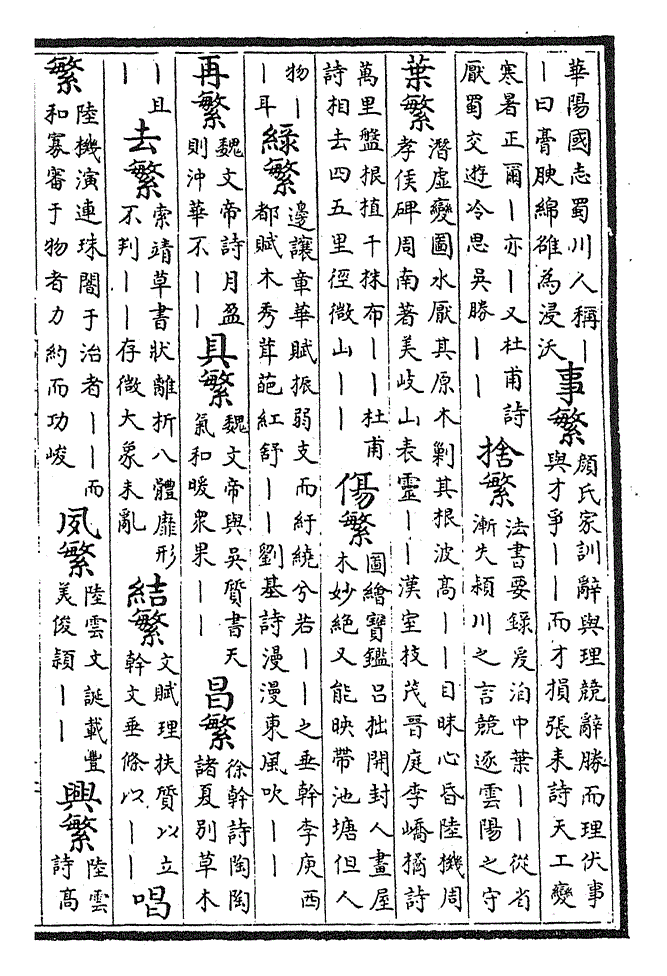 華陽國志蜀川人稱｜
｜曰膏腴綿雒為浸沃
事繁
顏氏家訓辭與理競辭勝而理伏事
與才爭｜｜而才損張耒詩天工變
寒暑正爾｜亦｜又杜甫詩
厭蜀交遊冷思吳勝｜｜
捨繁
法書要錄爰洎中葉｜｜從省
漸失潁川之言競逐雲陽之守
葉繁
潛虛變圖水厭其原木剝其根波高｜｜目昧心昏陸機周
孝侯碑周南著美岐山表靈｜｜漢室技茂晉庭李嶠橘詩
萬里盤根植千株布｜｜杜甫
詩相去四五里徑微山｜｜
傷繁
圖繪寶鑑呂拙開封人畫屋
木妙絕又能映帶池塘但人
物｜
｜耳
綠繁
邊讓章華賦振弱支而紆繞兮若｜｜之垂幹李庾西
都賦木秀茸葩紅舒｜｜劉基詩漫漫東風吹｜｜
再繁
魏文帝詩月盈
則沖華不｜｜
具繁
魏文帝與吳質書天
氣和暖眾果｜｜
昌繁
徐幹詩陶陶
諸夏別草木
｜且
｜
去繁
索靖草書狀離折八體靡形
不判｜｜存微大象未亂
結繁
文賦理扶質以立
幹文垂條以｜｜
唱
繁
陸機演連珠闇于治者｜｜而
和寡審于物者力約而功峻
夙繁
陸雲文誕載豐
美俊穎｜｜
興繁
陸雲
詩高